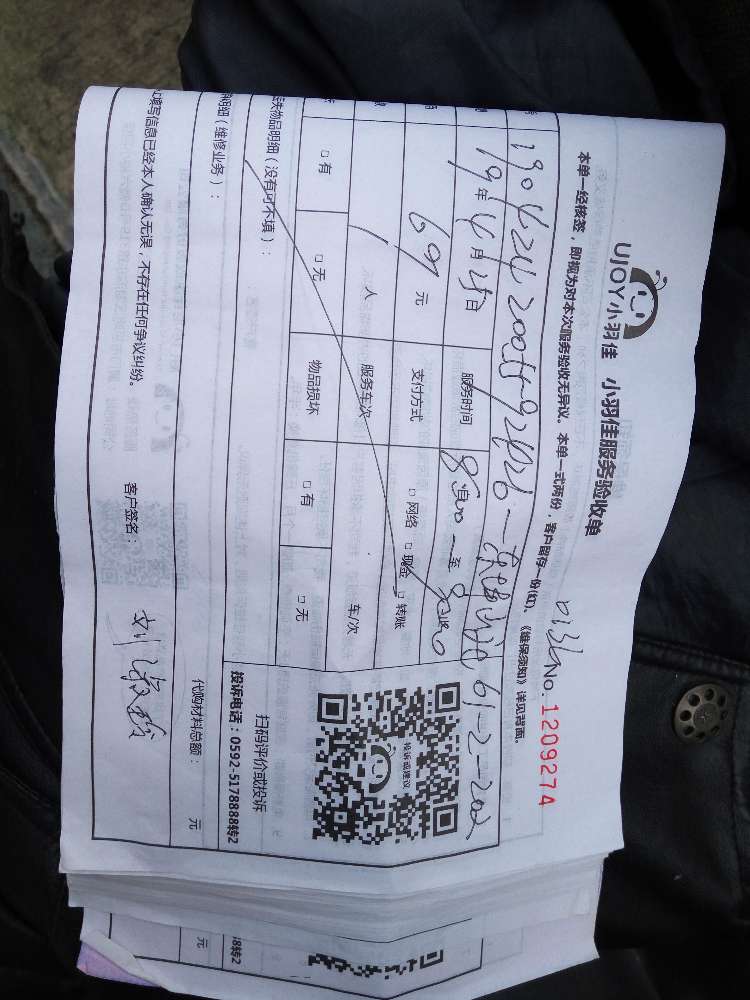 UJOY小羽佳 小羽佳服务验收单
No. 1209274
本单一经核签，即视为对本次服务验收无异议。本单一式两份，客户留存一份(红)、《维保须知》详见背面。
19年4月25日 服务时间
69元 支付方式 □ 网络 □ 现金 □ 转账
1 人 服务车次 车/次
□ 有 □ 无 物品损坏 □ 有 □ 无
失物品明细（没有可不填）：
扫码评价或投诉
投诉或建议
投诉电话：0592-5178888转2
明细（维修业务）：
代购材料总额： 元
填写信息已经本人确认无误，不存在任何争议纠纷。 客户签名：
转2
元